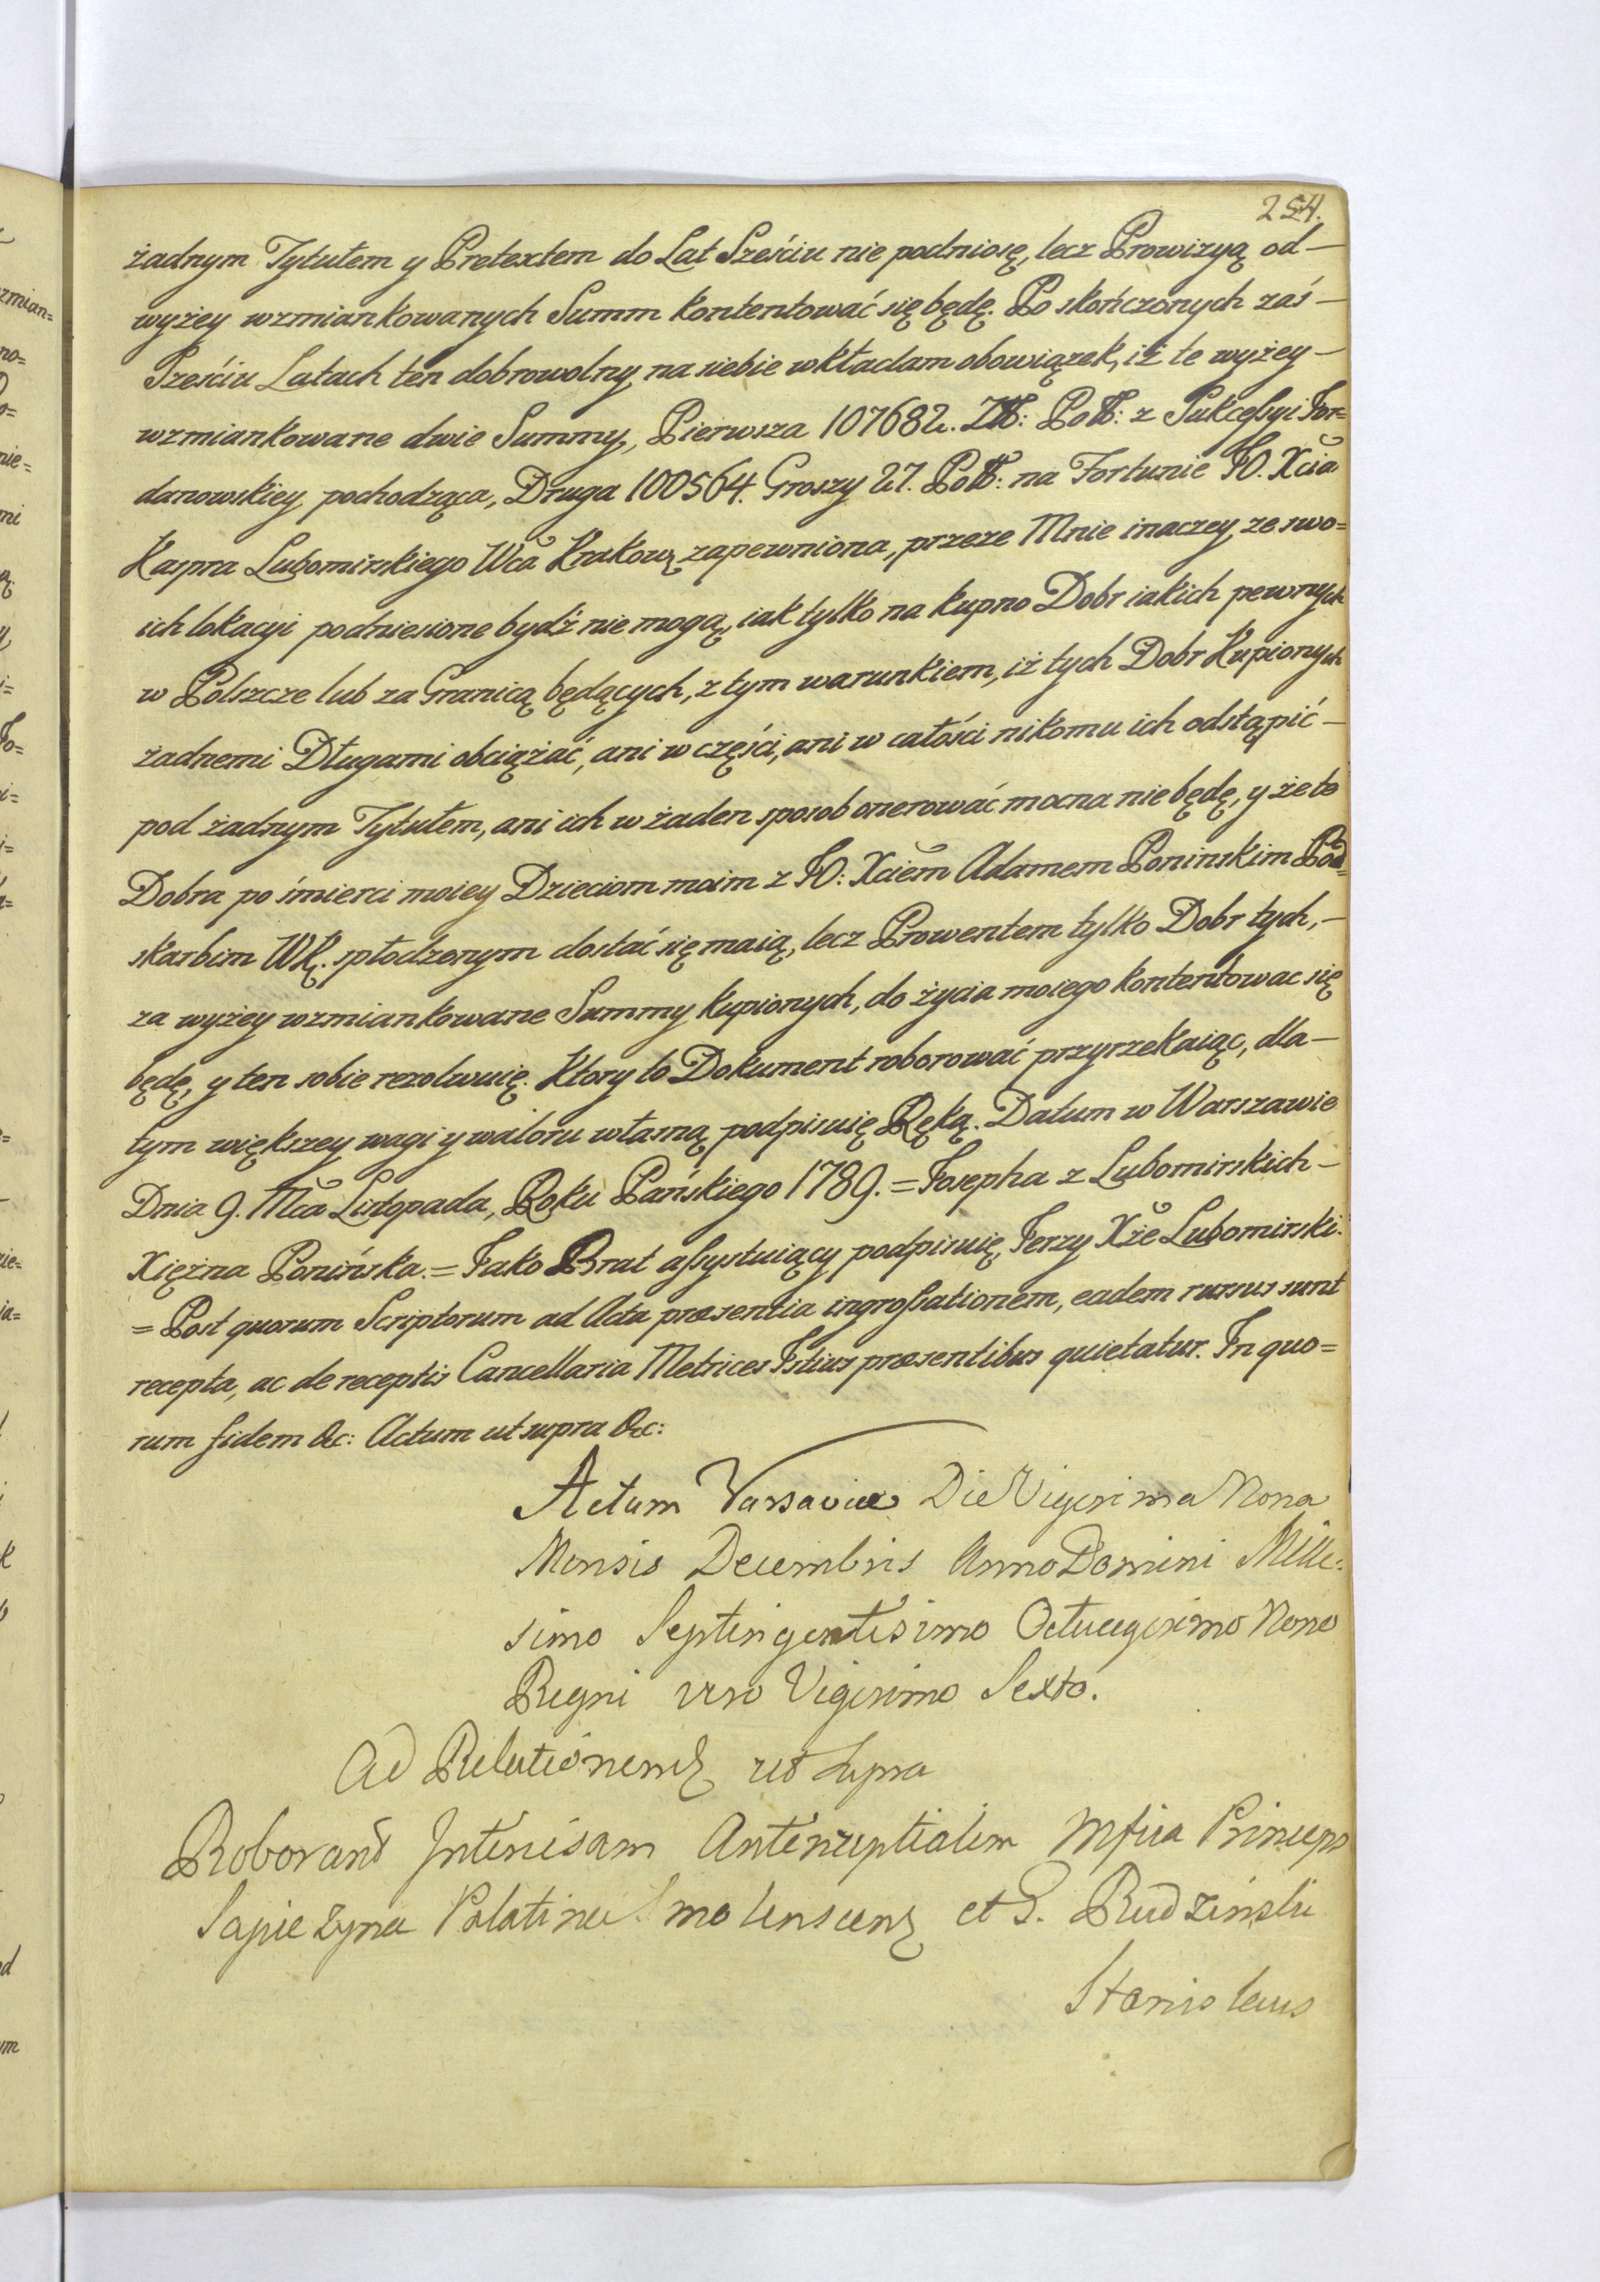 254.
żadnym Tytułem y Pretextem do Lat Sześciu nie podniosę, lecz Prowizyą od—
wyżey wzmiankowanych Summ kontentować się będę. Po skończonych zaś—
Sześciu Latach ten dobrowolny na siebie wkładam obowiązek, iż te wyżey—
wzmiankowane dwie Summy, Pierwsza 107682. Złł: Poll: z Sukcessyi Jor=
danowskiey pochodząca, Druga 100564. Groszy 27. Poll: na Fortunie JO. Xcia
Kaspra Lubomirskiego Wca Krakow: zapewniona, przeze Mnie inaczey, ze swo=
ich lokacyi podniesione bydź nie mogą, iak tylko na kupno Dobr iakich pewnych
w Polszcze lub za Granicą będących, z tym warunkiem, iż tych Dobr Kupionych
żadnemi Długami obciążać, ani w części, ani w całości nikomu ich odstąpić—
pod żadnym Tytułem, ani ich w żaden sposob onerować mocna nie będę, y że te
Dobra po śmierci moiey Dzieciom moim z JO: Xciem Adamem Poninskim Pod=
skarbim WK. spłodzonym dostać się maią, lecz Prowentem tylko Dobr tych,—
za wyżey wzmiankowane Summy kupionych, do życia moiego kontentowac się
będę, y ten sobie rezolwuię. Ktory to Dokument roborować przyrzekaiąc, dla—
tym większey wagi y waloru własną podpisuię Ręką. Datum w Warszawie
Dnia 9. Mca Listopada, Roku Pańskiego 1789. = Josepha z Lubomirskich—
Xiężna Ponińska. = Jako Brat assystuiący podpisuię, Jerzy Xże Lubomirski.
= Post quorum Scriptorum ad Acta præsentia ingrossationem, eadem rursus sunt
recepta, ac de receptis Cancellaria Metrices Istius præsentibus quietatur. In quo=
rum fidem &c: Actum ut supra &c:
Actum Varsaviæ Die Vigesima Nona
Mensis Decembris Anno Domini Mille=
simo Septingentesimo Octuagesimo Nono
Regni vero Vigesimo Sexto.
Ad Relationem ut supra
Roborand Antenuptialem Mfica Princeps
Sapiezyna Palatina Smolenscen et G. Rudzinski
Stanislaus